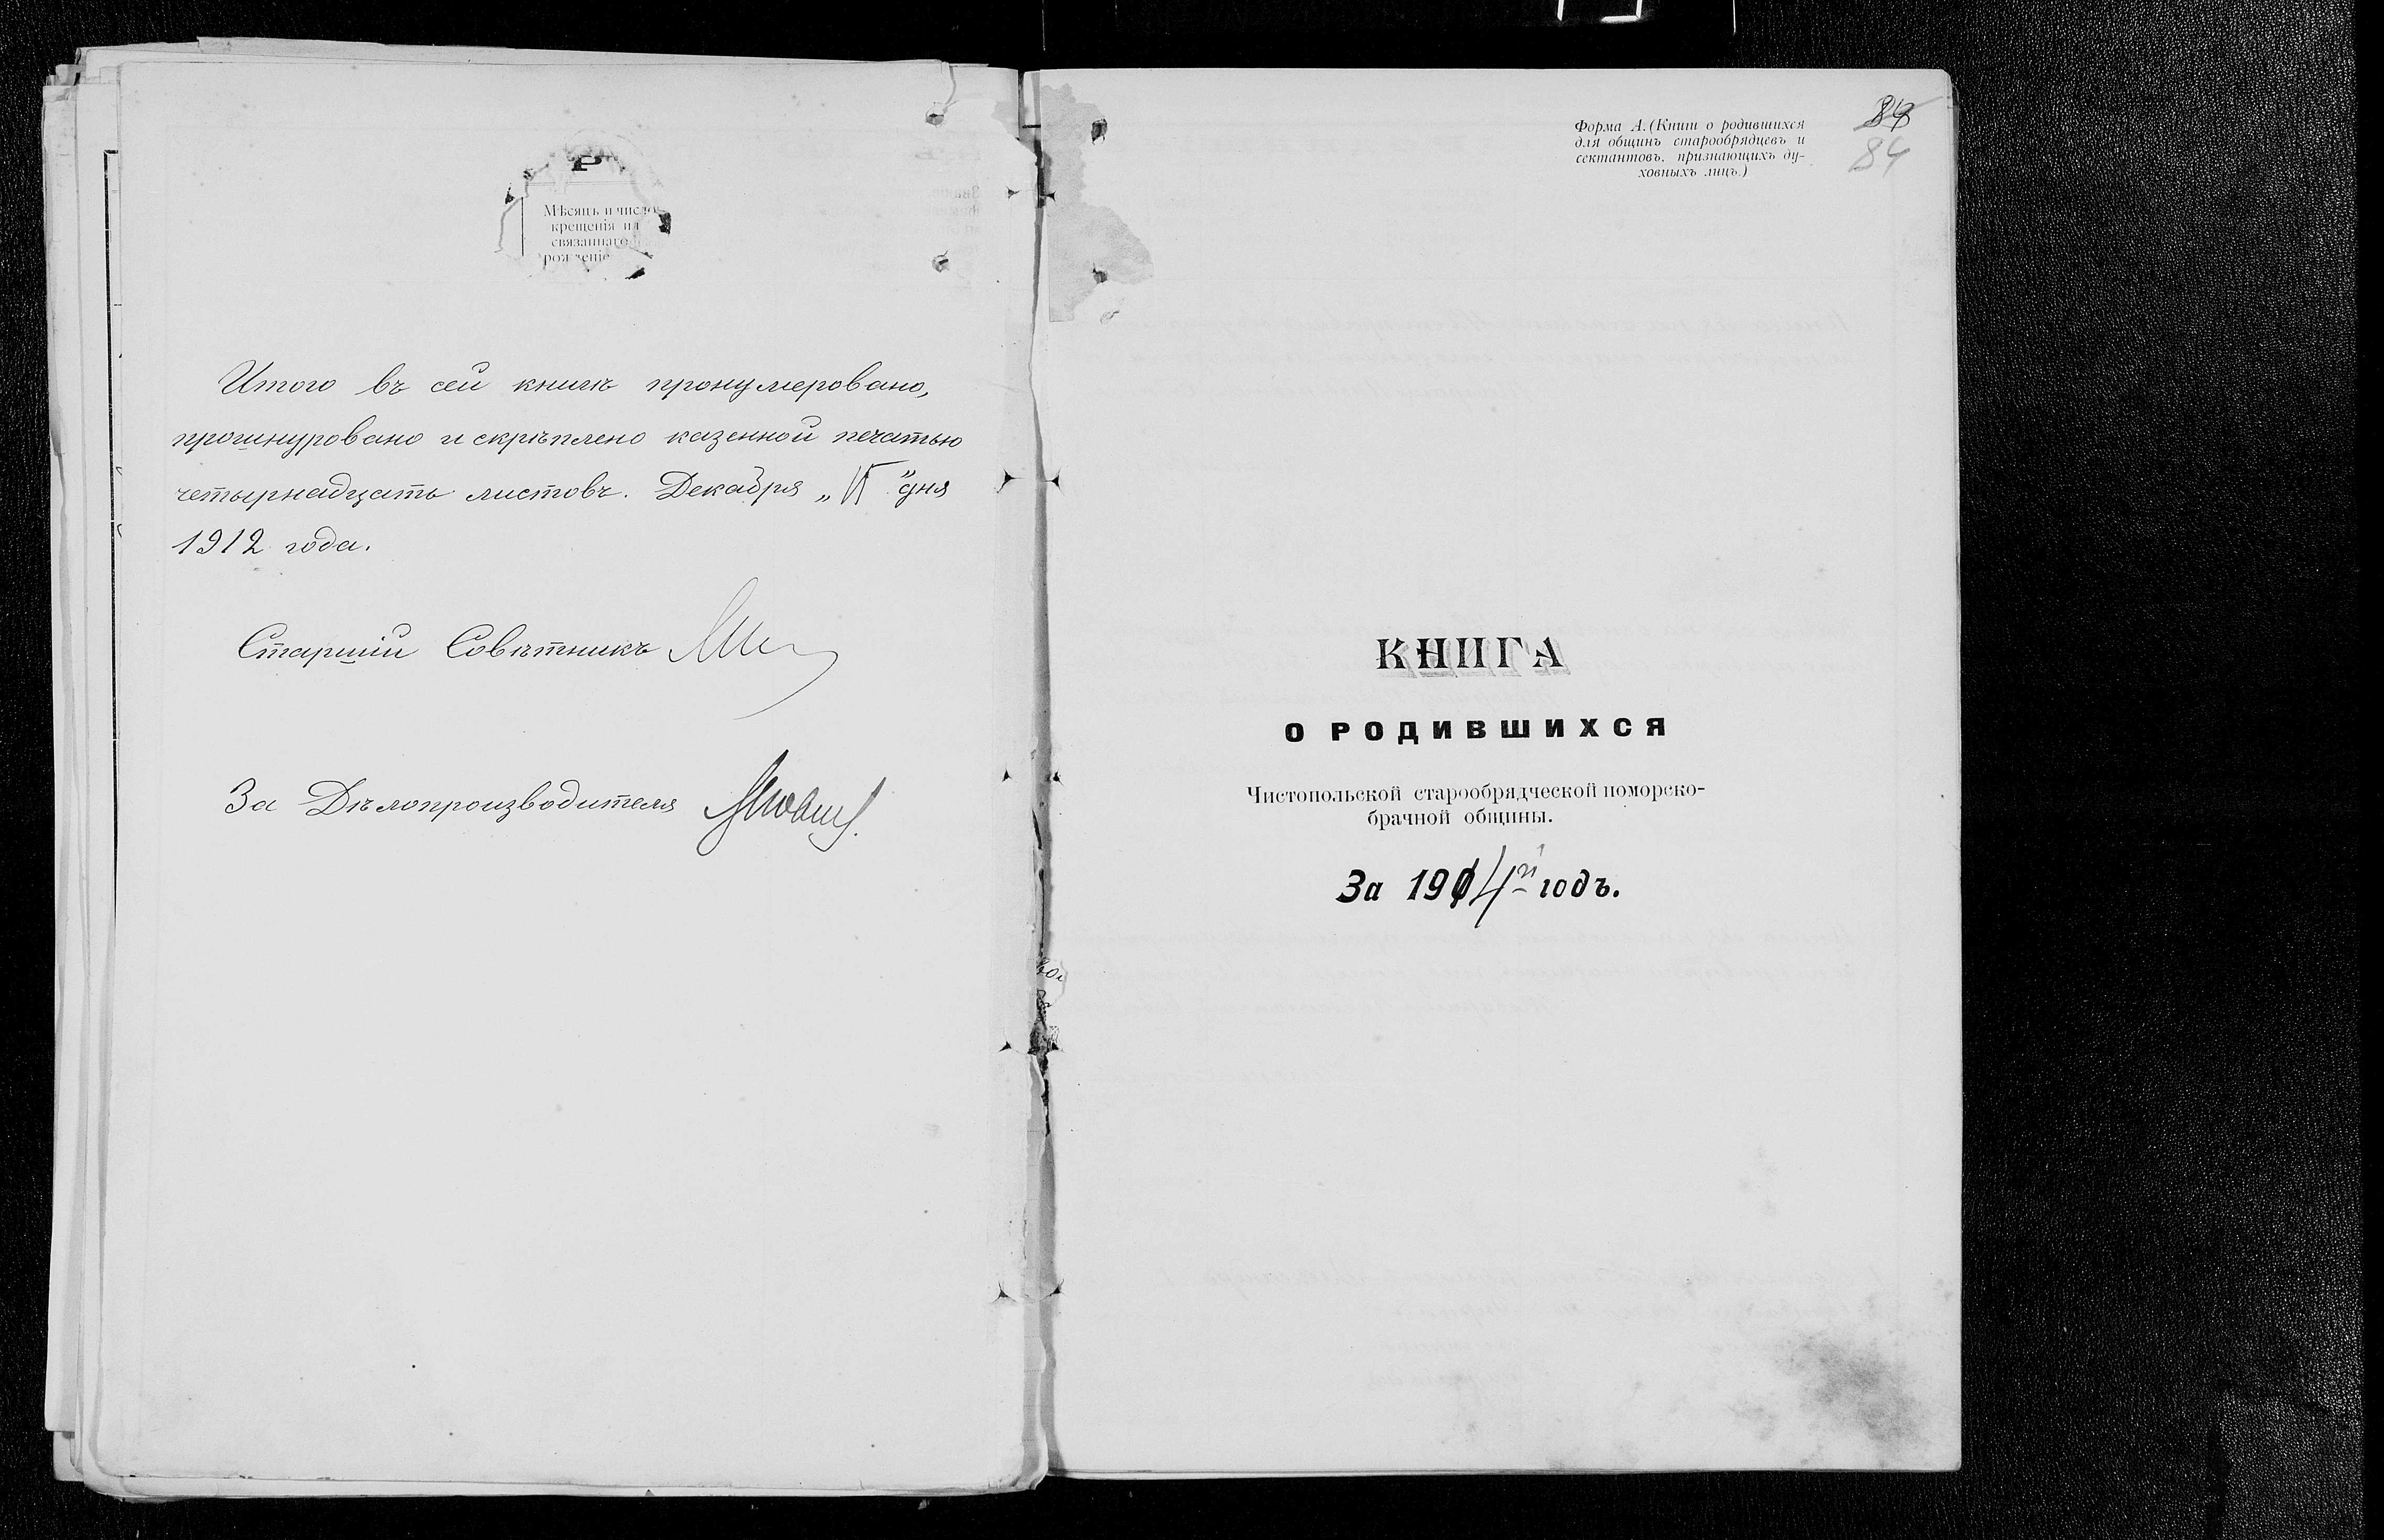 Р
Мѣсяцъ и число
крещенія ил
связаннаго
рожденіе
Итого въ сей книгѣ пронумеровано,
прошнуровано и скрѣплено казенной печатью
четырнадцать листовъ. Декабря „ “ дня
1912 года.
Старшій Совѣтникъ
За Дѣлопроизводителя
84
Форма А. (Книги о родившихся
для общинъ старообрядцевъ и
сектантовъ, признающихъ ду-
ховныхъ лицъ.)
КНИГА
О РОДИВШИХСЯ
Чистопольской старообрядческой поморско-
брачной общины.
За 1914й годъ.